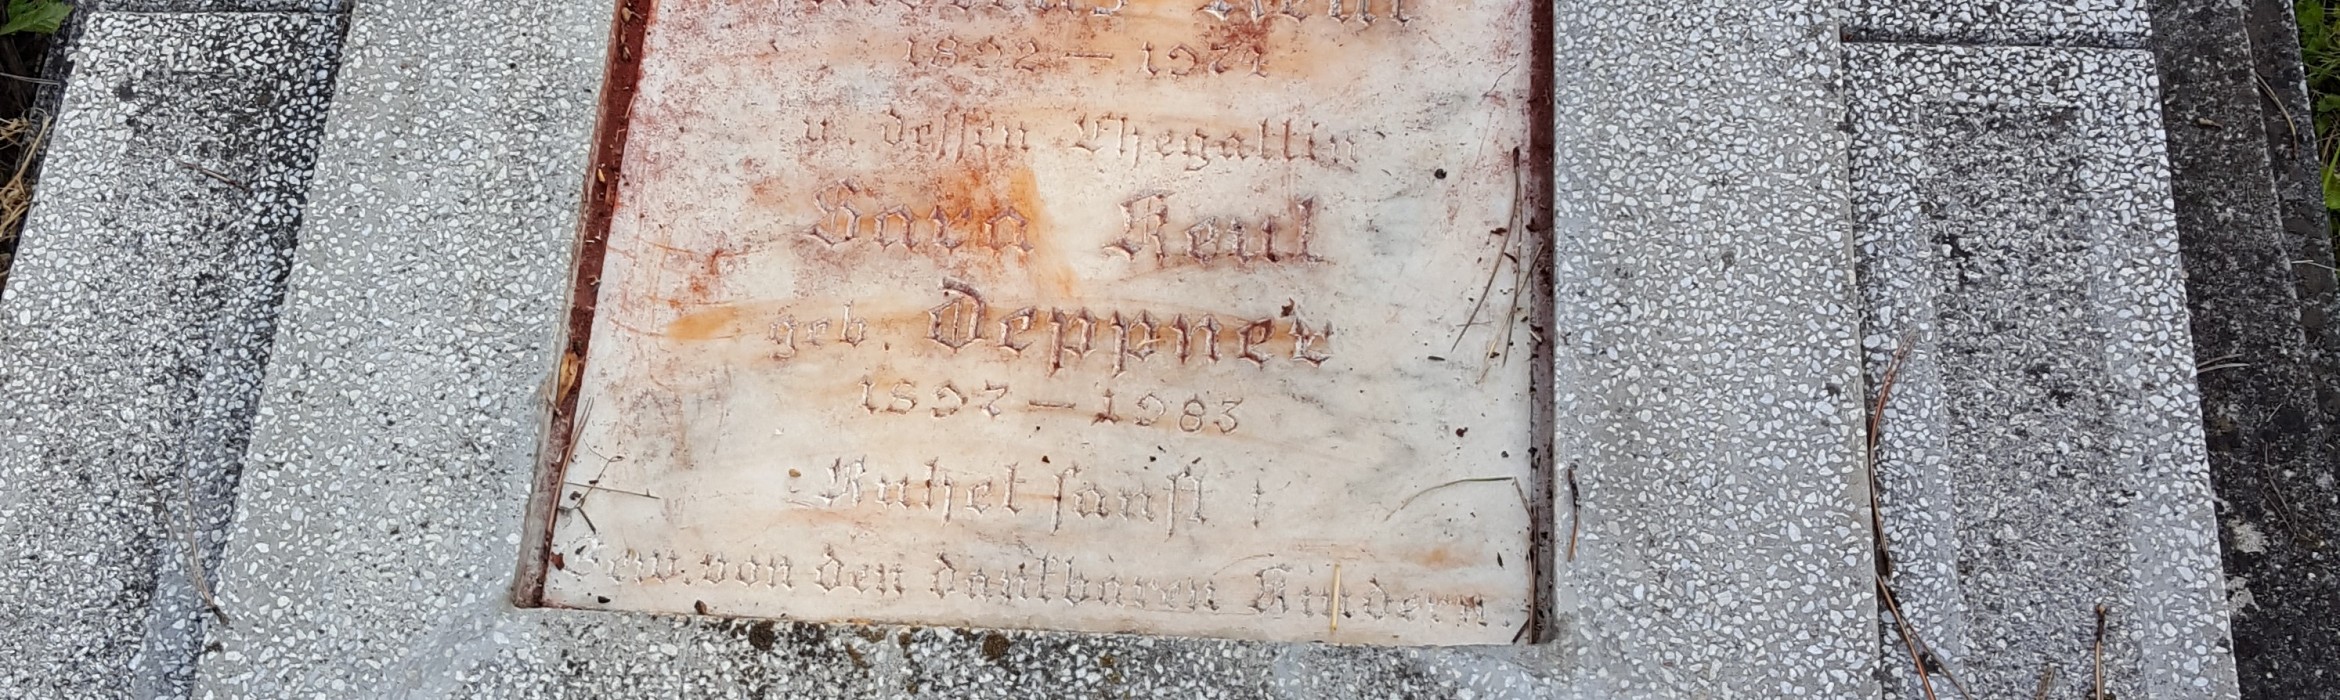 Keul
1892 – 1971
u. dessen Ehegattin
Sara Keul
geb. Deppner
1897 – 1983
Ruhet sanft !
Gew. von den dankbaren Kindern.